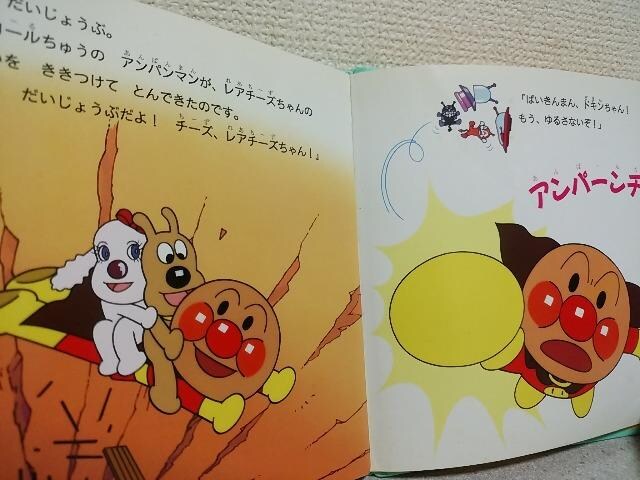 だいじょうぶ。
ロールちゅうの アンパンマンが、レアチーズちゃんの
を ききつけて とんできたのです。
だいじょうぶだよ! チーズ、レアチーズちゃん!』
「ばいきんまん、ドキンちゃん!
もう、ゆるさないぞ!」
アンパーンチ